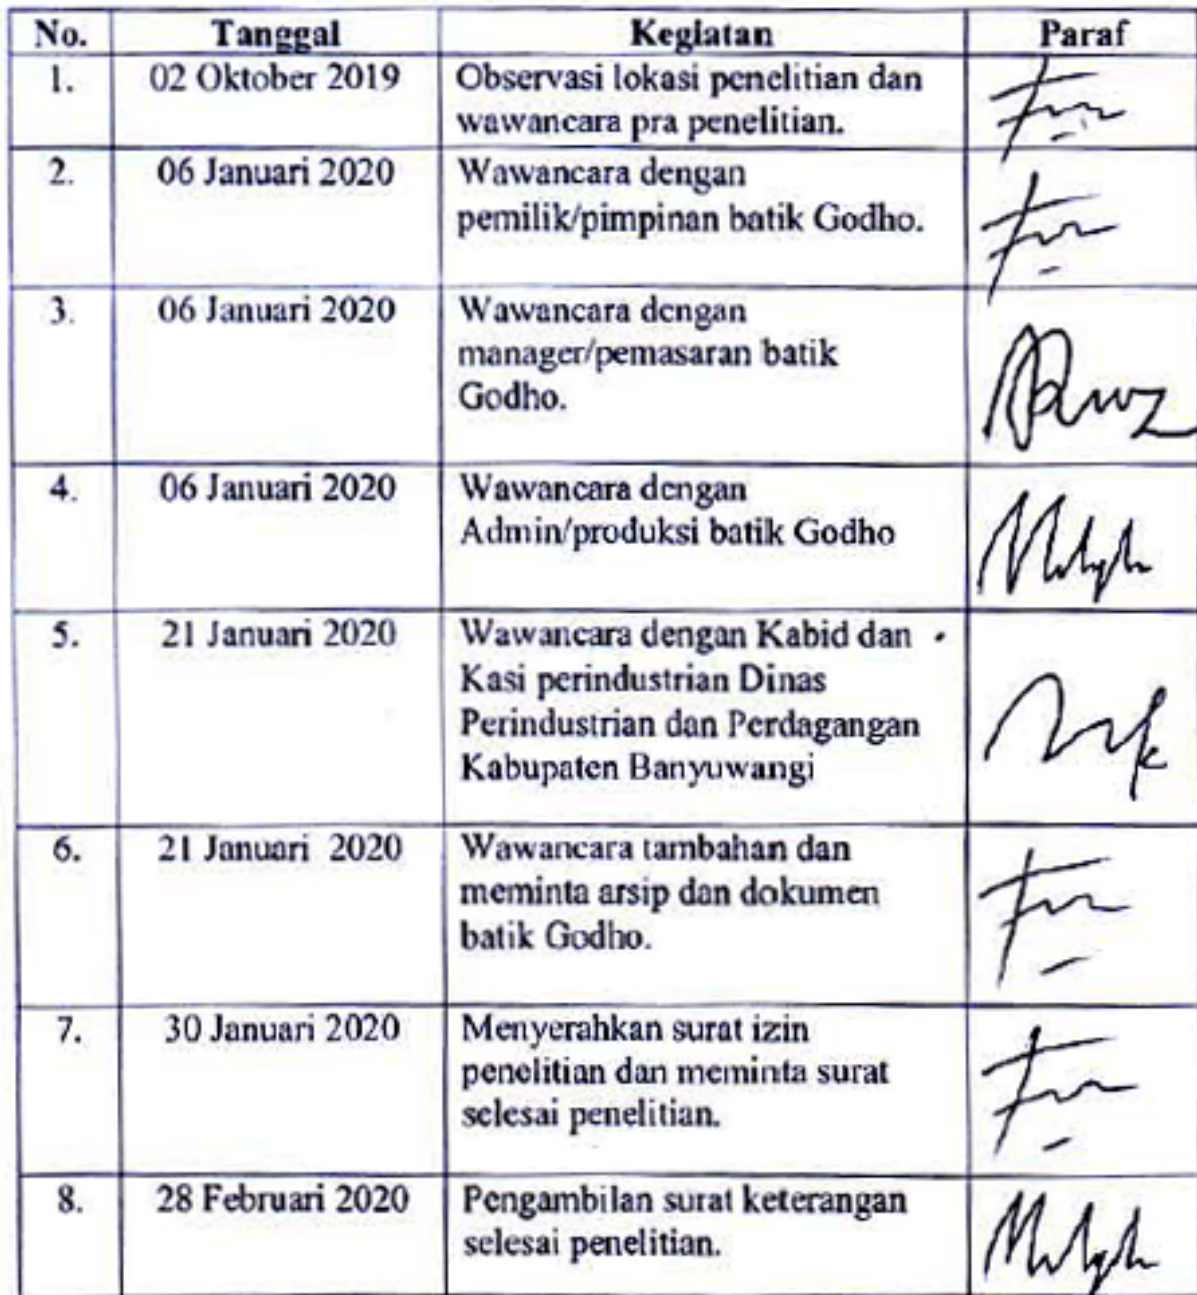 No. Tanggal Kegiatan Paraf
1. 02 Oktober 2019 Observasi lokasi penelitian dan
wawancara pra penelitian.
2. 06 Januari 2020 Wawancara dengan
pemilik/pimpinan batik Godho.
3. 06 Januari 2020 Wawancara dengan
manager/pemasaran batik
Godho.
4. 06 Januari 2020 Wawancara dengan
Admin/produksi batik Godho
5. 21 Januari 2020 Wawancara dengan Kabid dan
Kasi perindustrian Dinas
Perindustrian dan Perdagangan
Kabupaten Banyuwangi
6. 21 Januari 2020 Wawancara tambahan dan
meminta arsip dan dokumen
batik Godho.
7. 30 Januari 2020 Menyerahkan surat izin
penelitian dan meminta surat
selesai penelitian.
8. 28 Februari 2020 Pengambilan surat keterangan
selesai penelitian.